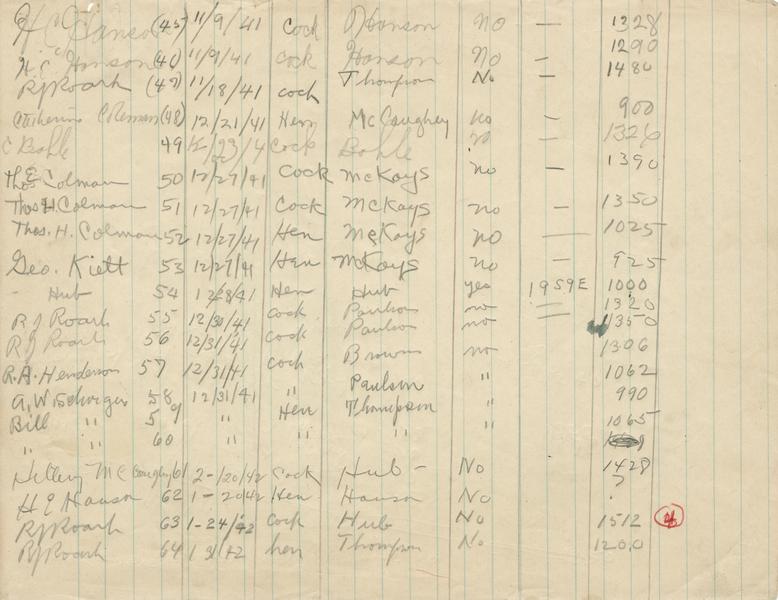 H C Hanson (45) 11/9/41 Cock Hanson No — 1328
H.C. Hanson (46) 11/9/41 cock Hanson No — 1290
RJ Roark (47) 11/18/41 cock Thompson No — 1480
Catherine (48) 12/21/41 Hen McCaughey no — 900
C Bohle 49 12/23/4 Cock Bohle no — 1326
Thos Colman 50 12/27/41 Cock McKays no — 1390
Thos H. Colman 51 12/27/41 Cock McKays no — 1350
Thos. H. Colman 52 12/27/41 Hen McKays no — 1025
Geo. Kiett 53 12/27/41 Hen McKays no — 925
- Hub 54 12/28/41 Hen Hub yes 1959E 1000
RJ Roark 55 12/30/41 cock Paulson no — 1320
RJ Roark 56 12/31/41 cock Paulson no — 1350
R.A. Henderson 57 12/31/41 cock Browns no 1306
A.W. Schorger 58 12/31/41 " Paulson " 1062
Bill " 59 " Hen Thompson " 990
" 60 " " " 1065
Hillery McCaughey 61 2-/20/42 Cock Hub - No 1428
H C Hanson 62 1-20/42 Hen Hanson No ?
RJ Roark 63 1-24/42 cock Hub No 1512 4
RJ Roark 64 1 31 42 hen Thompson No 1200